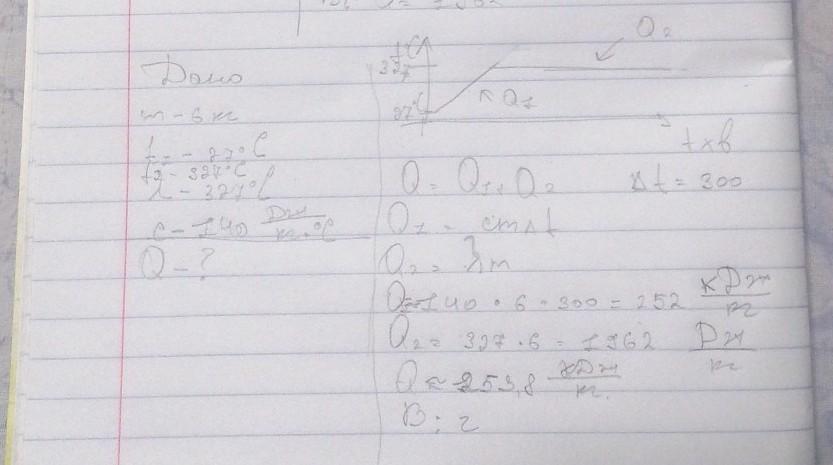 Дано
m - 6 кг
t₁ - 27°C
t₂ - 327°C
λ - 327°C
c - 140 Дж/кг·°C
Q - ?
t°C
327
27°C
Q₂
Q₁
t хв
Q = Q₁ + Q₂ Δt = 300
Q₁ = cmΔt
Q₂ = λm
Q₁ = 140 · 6 · 300 = 252 кДж/кг
Q₂ = 327 · 6 = 1962 Дж/кг
Q ≈ 253,8 кДж/кг.
В: г